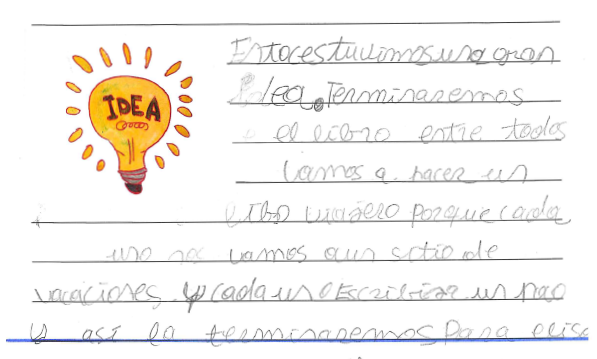 IDEA
Entoces tuvimos una gran
idea. Terminaremos
el libro entre todos
vamos a hacer un
libro viajero porque cada
uno nos vamos a un sitio de
vacaciones y cada uno Escribira un
y así lo terminaremos Para